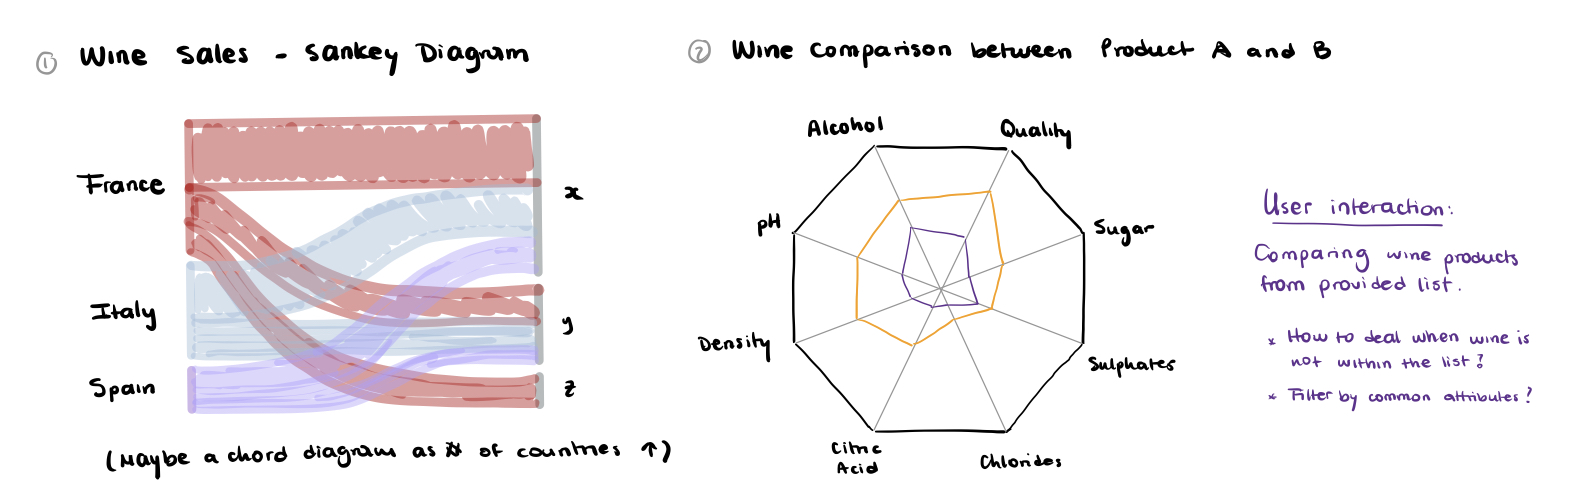 ① Wine Sales - Sankey Diagram
France
Italy
Spain
x
y
z
(Maybe a chord diagram as # of countries ↑)
② Wine Comparison between Product A and B
Alcohol
Quality
pH
Sugar
Density
Sulphates
Citric
Acid
Chlorides
User interaction:
Comparing wine products
from provided list.
* How to deal when wine is
not within the list?
* Filter by common attributes?